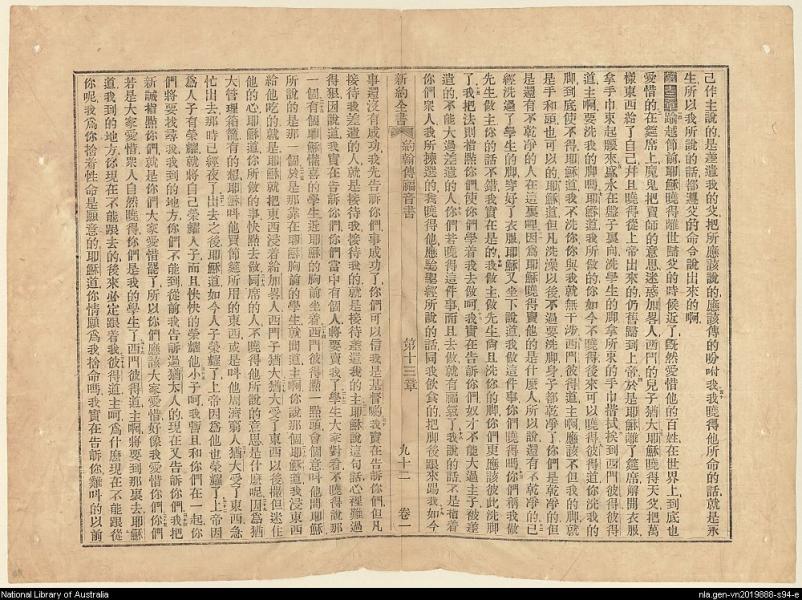 己作主說的是差遣我的父把所應該說的應該傳的吩咐我我曉得他所命的話就是永
生所以我所說的話都遵父的命令說出來的啊
踰越節前耶穌曉得離世歸父的時候近了旣然愛惜他的百姓在世界上到底也
愛惜的在筵席上魔鬼把賣師的意思迷惑加畧人西門的兒子猶大耶穌曉得天父把萬
樣東西給了自己幷且曉得從上帝出來的仍舊歸到上帝於是耶穌離了筵席解開衣服
拿手巾束起腰來盛水在盤子裏向洗學生的脚拿所束的手巾揩拭挨到西門彼得彼得
道主啊要洗我的脚嗎耶穌道我所做的你如今不曉得後來可以曉得彼得道你洗我的
脚到底使不得耶穌道我不洗你你與我就無干涉西門彼得道主啊應該不但我的脚就
是手和頭也可以的耶穌道但凡洗澡以後不過要洗脚身子都乾凈了你們是乾凈的但
是還有不乾凈的人在這裏哩因爲耶穌曉得賣他的是什麼人所以說還有不乾凈的已
經洗過了學生的脚穿好了衣服耶穌又坐下說道我做這件事你們曉得嗎你們稱我做
先生做主你的話不錯我實在是的我做主做先生尙且洗你的脚你們更應該彼此洗脚
了我把法則指點你們使你們學着我去做呵我實在告訴你們奴才不能大過主子被差
遣的不能大過差遣的人你們若曉得這件事而且去做就有福氣了我說的話不是指着
你們衆人我所揀選的我曉得他應驗聖經所說的話同我飲食的把脚後跟來踢我如今
新約全書 約翰傳福音書 第十三章 九十二 卷一
事還沒有成功我先告訴你們事成功了你們可以信我是基督喲我實在告訴你們但凡
接待我差遣的人就是接待我接待我的就是接待差遣我的主耶穌說這句話心裡難過
得狠因說道我實在告訴你們你們當中有個人將要賣我了學生大家對看不曉得說那
一個有個耶穌懽喜的學生近耶穌的胸前坐着西門彼得點一點頭會個意叫他問耶穌
所說的是那一個於是那靠在耶穌胸前的學生就問道主啊你說那個耶穌道我浸東西
給他吃的就是耶穌就把東西浸着給加畧人西門子猶大猶大受了東西以後撒但迷住
他的心耶穌道你所做的事快點去做同席的人不曉得他所說的意思是什麼呢因爲猶
大管理箱籠有的想耶穌叫他買節筵所用的東西或是叫他周濟窮人猶大受了東西急
忙出去那時已經夜了出去之後耶穌道如今人子榮耀了上帝因爲他也榮耀了上帝因
爲人子有榮耀就將自己榮耀人子而且快快的榮耀他小子呵我暫且和你們在一起你
們將要找尋我我到的地方你們不能到從前我告訴過猶太人的現在又告訴你們我把
新誡指點你們就是你們大家愛惜罷了所以你們應該大家愛惜好像我愛惜你們你們
若是大家愛惜衆人自然曉得你們是我的學生了西門彼得道主啊將要到那裏去耶穌
道我到的地方你現在不能跟去的後來必定跟着我彼得道主呵爲什麼現在不能跟從
你呢我爲你捨着性命是願意的耶穌道你情願爲我捨命嗎我實在告訴你雞叫的以前
National Library of Australia
nla.gen-vn2019888-s94-e